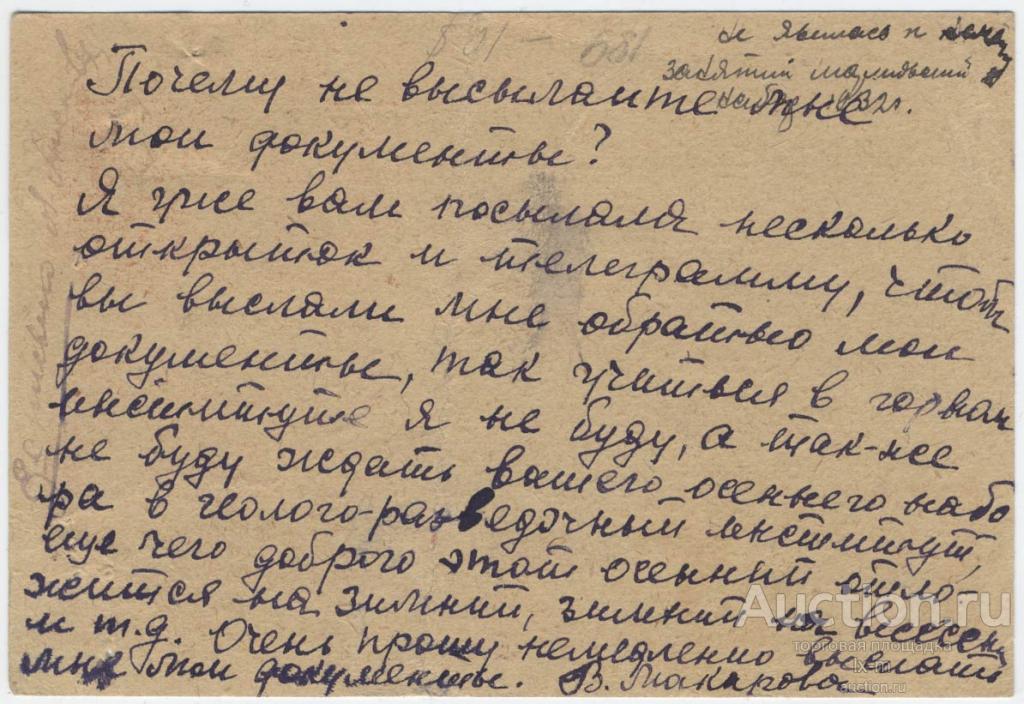 881 – 681
не явилась к началу
занятий
1932 г.
Почему не высылаите мне
мои документы?
Я уже вам посылала несколько
открыток и телеграмму, чтобы
вы выслали мне обратно мои
документы, так учиться в горном
институте я не буду, а так-же
не буду ждать вашего осеннего набо
ра в геолого-разведочный институт,
еще чего доброго этот осенний отло-
жится на зимний, зимний на весенний
и т.д. Очень прошу немедленно выслать
мне мои документы. В. Макарова
Auction.ru
торговая площадка
lx-m
auction.ru